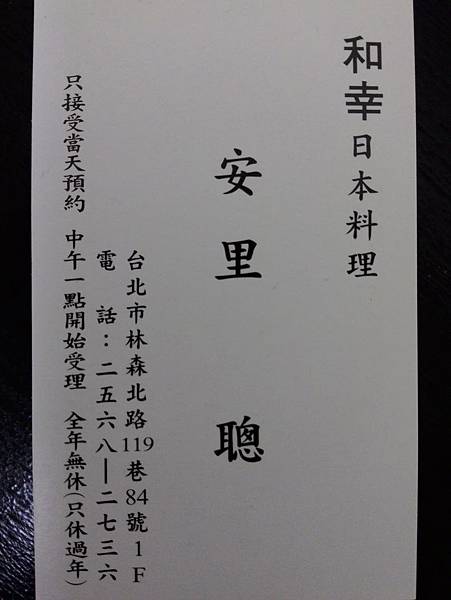 和幸日本料理
安里 聰
台北市林森北路119巷84號1F
電話：二五六八—二七三六
只接受當天預約 中午一點開始受理 全年無休(只休過年)